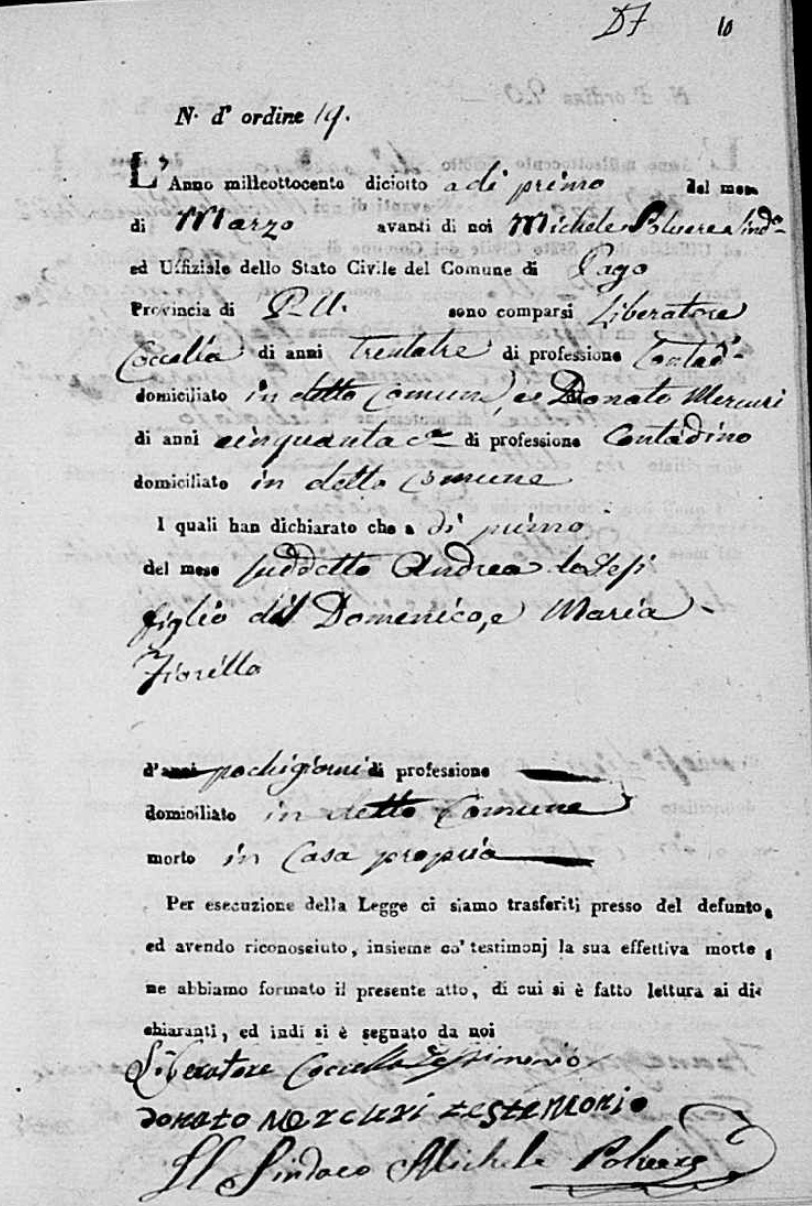 10
N. d' ordine 19.
L'Anno milleottocento diciotto a dì primo del mese
di Marzo avanti di noi Michele Polvere Sind.o
ed Uffiziale dello Stato Civile del Comune di Pago
Provincia di P. U. sono comparsi Liberatore
Coccolla di anni trentatre di professione Contad.o
domiciliato in detto Comune, e Donato Mercuri
di anni cinquanta di professione Contadino
domiciliato in detto Comune
I quali han dichiarato che a dì primo
del mese suddetto Andrea
figlio di Domenico, e Maria
Fiorillo
d'anni pochi giorni di professione
domiciliato in detto Comune
morto in Casa propria
Per esecuzione della Legge ci siamo trasferiti presso del defunto,
ed avendo riconosciuto, insieme co' testimonj la sua effettiva morte,
ne abbiamo formato il presente atto, di cui si è fatto lettura ai di-
chiaranti, ed indi si è segnato da noi
Liberatore Coccolla Testimonio
Donato Mercuri testemonio
Il Sindaco Michele Polvere